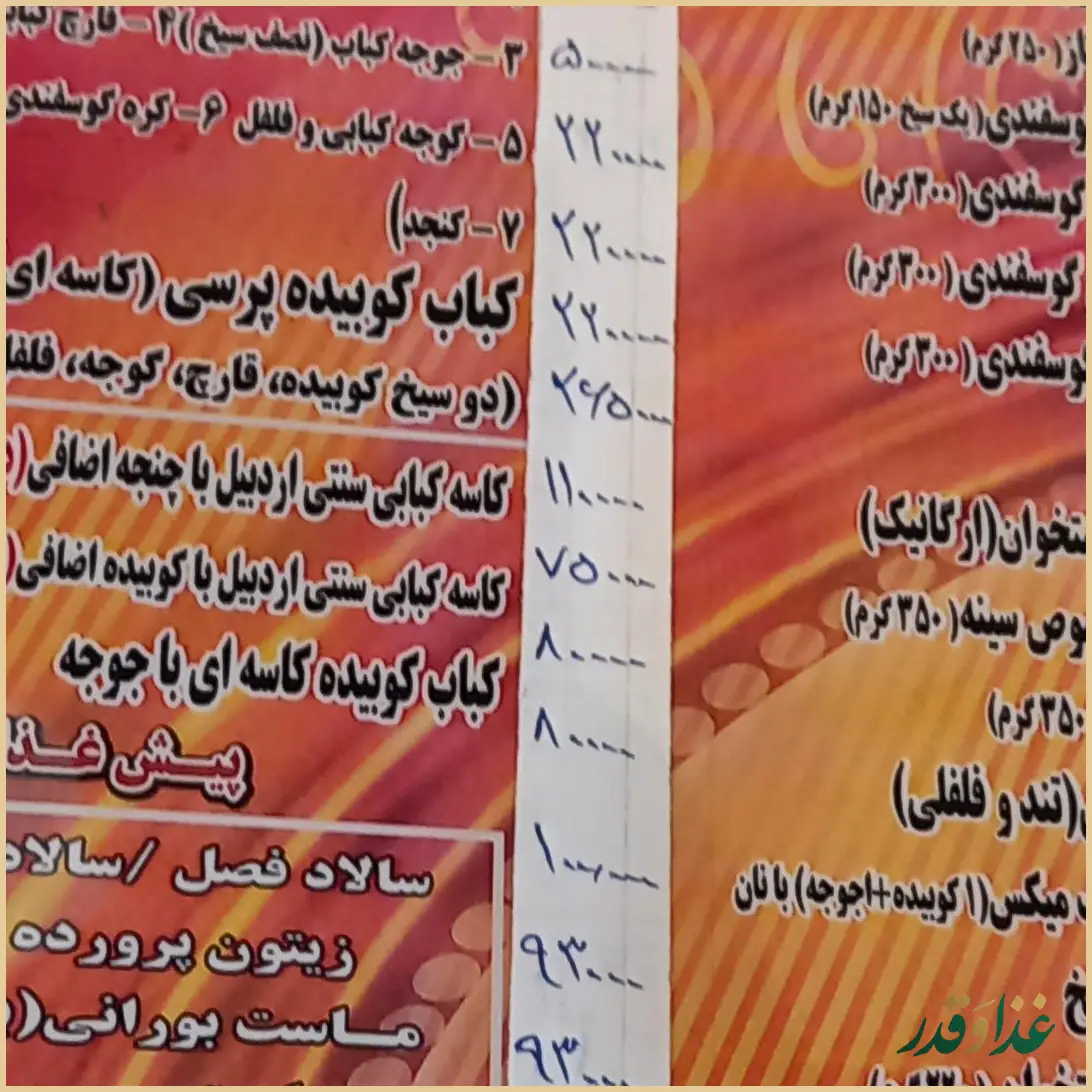 از( ۲۵۰ گرم)
وسفندی( یک سیخ ۱۵۰ گرم)
گوسفندی( ۳۰۰ گرم)
گوسفندی( ۳۰۰ گرم)
وسفندی( ۳۰۰ گرم)
ستخوان(ارگانیک)
وص سینه( ۳۵۰ گرم)
۳۵۰ گرم)
(تند و فلفلی)
میکس(۱ کوبیده+۱جوجه) با نان
۵۰۰۰۰
۲۲۰۰۰۰
۲۲۰۰۰۰
۲۲۰۰۰۰
۲۶۵۰۰۰
۱۱۰۰۰۰
۷۵۰۰۰
۸۰۰۰۰
۸۰۰۰۰
۱۰۰۰۰۰
۹۳۰۰۰
۹۳۰۰۰
۳ - جوجه کباب (نصف سیخ )۴ - قارچ کباب
۵ - گوجه کبابی و فلفل ۶ - کره گوسفندی
۷ - کنجد)
کباب کوبیده پرسی (کاسه ای
(دو سیخ کوبیده، قارچ، گوجه، فلفل
کاسه کبابی سنتی اردبیل با چنجه اضافی(
کاسه کبابی سنتی اردبیل با کوبیده اضافی(
کباب کوبیده کاسه ای با جوجه
پیش غذا
سالاد فصل /سالاد
زیتون پرورده
ماست بورانی(
غذا و قدر